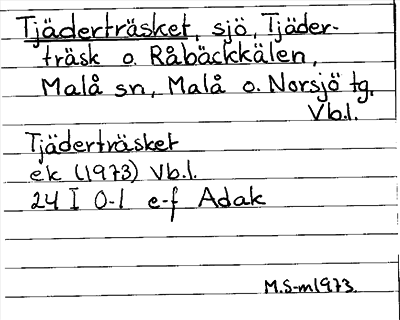 Tjäderträsket, sjö, Tjäder-
träsk o. Råbäckkälen,
Malå sn, Malå o. Norsjö tg,
Vb.l.
Tjäderträsket
ek (1973) Vb.l.
24 I 0-1 e-f Adak
M.S-m1973.